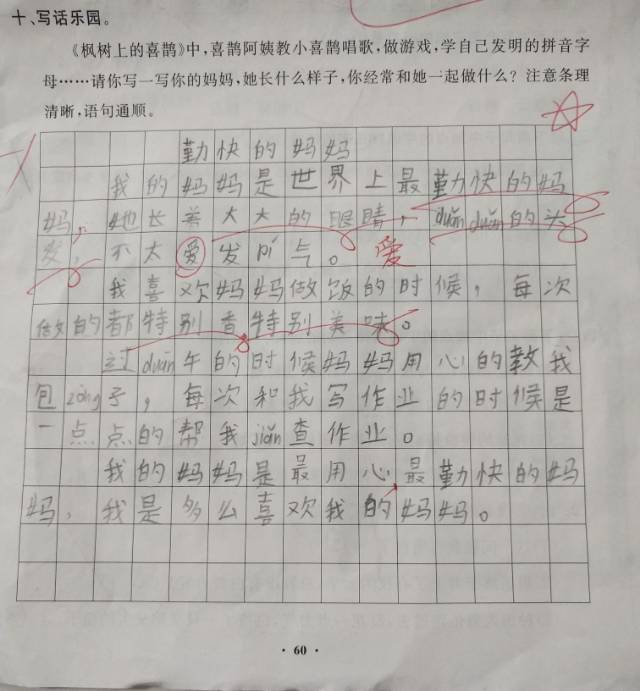 十、写话乐园。
《枫树上的喜鹊》中,喜鹊阿姨教小喜鹊唱歌,做游戏,学自己发明的拼音字
母……请你写一写你的妈妈,她长什么样子,你经常和她一起做什么?注意条理
清晰,语句通顺。
勤快的妈妈
我的妈妈是世界上最勤快的妈
妈,她长着大大的眼睛,duǎn duǎn的头
发,不太爱发pí气。爱
我喜欢妈妈做饭的时候,每次
做的都特别香特别美味。
过duān午的时候妈妈用心的教我
包zòng子,每次和我写作业的时候是
一点点的帮我jiǎn查作业。
我的妈妈是最用心最勤快的妈
妈,我是多么喜欢我的妈妈。
·60·